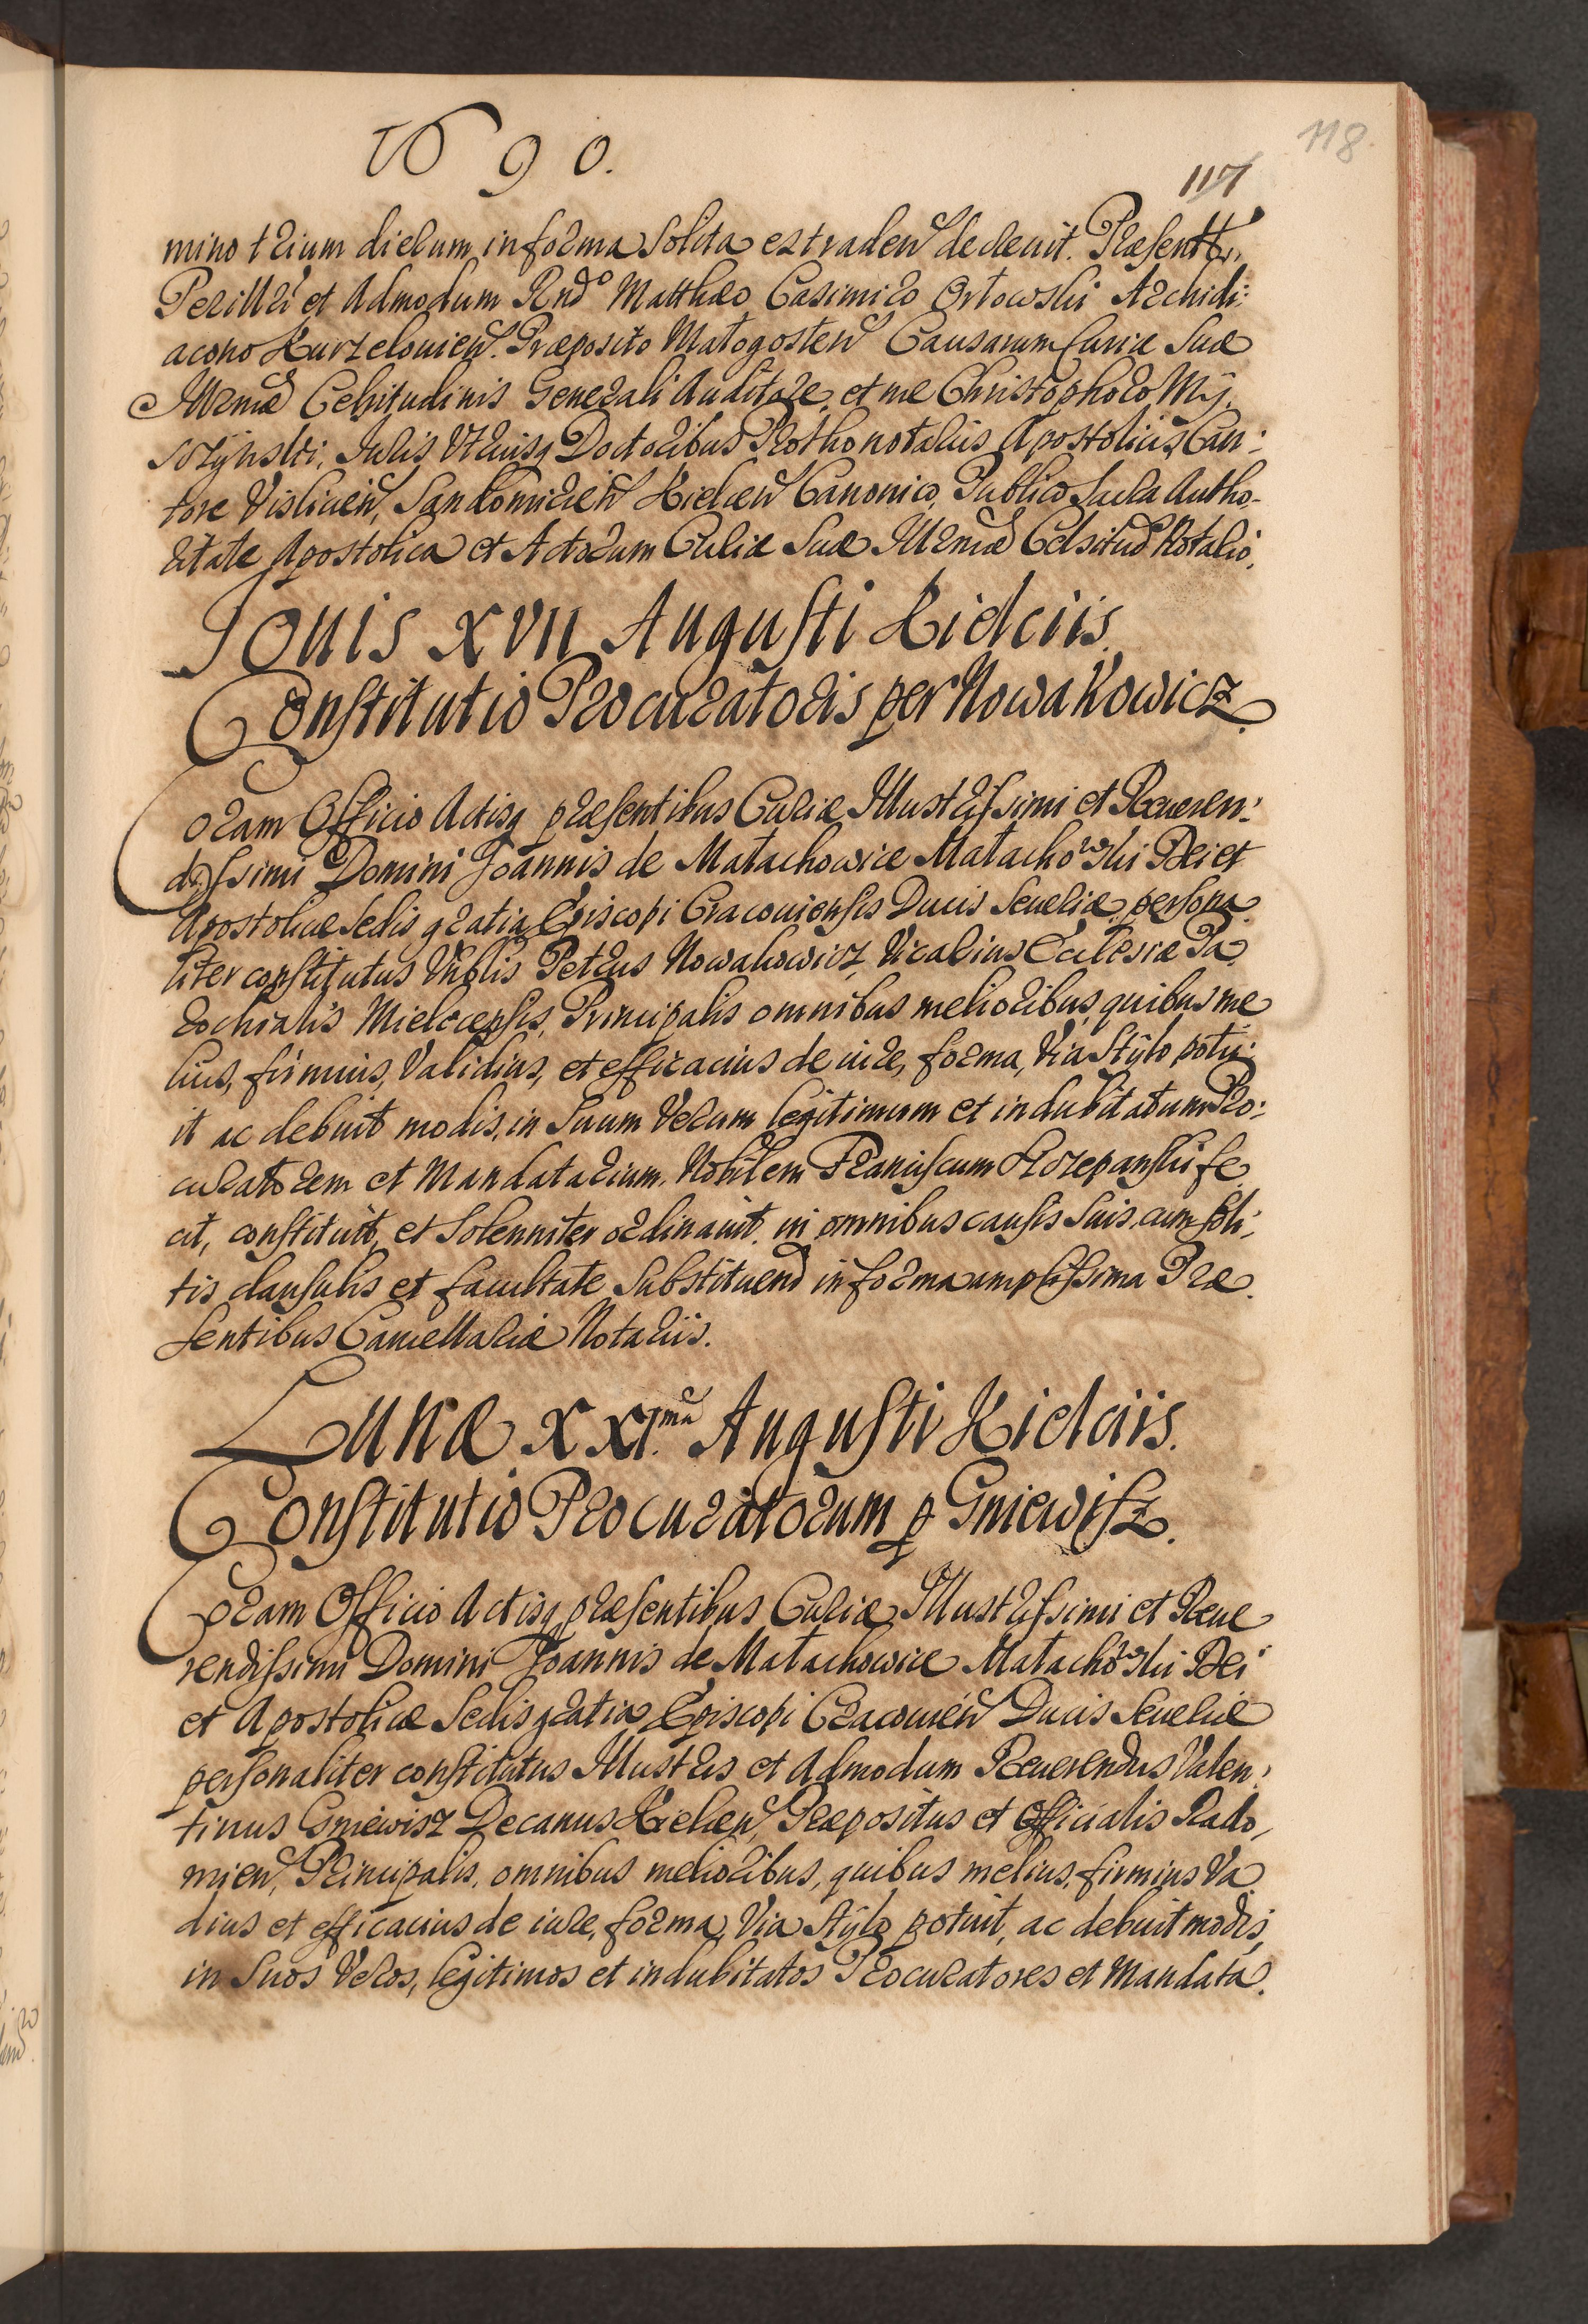 1690.
118
117
mino trium dierum in forma solita extraden̄ decreuit. Præsentt.
Perillri et Admodum Rndo Matthæo Casimiro Orłowski Archidi:
acono Kurzelouien. Præposito Małogosten Causarum Curiæ Suæ
Illrmæ Celsitudinis Generali Auditore, et me Christophoro My,
szyński, Iuris Vtriusq Doctoribus Prothonotariis Apostolicis, Can:
tore Vislicien, Sandomirien Kielcen Canonico, Publico Sacra Autho-
ritate Apostolica et Actorum Curiæ Suæ Illrmæ Celsitud Notario.
Iouis XVII Augusti Kielciis.
Constitutio Procuratoris per Nowakowicz.
Coram Officio Actisq præsentibus Curiæ Illustrissimi et Reueren:
dissimi Domini Joannis de Małachowice Małachowski Dei et
Apostolicæ Sedis gratia Episcopi Cracouiensis Ducis Seueriæ persona
liter constitutus Vnblis Petrus Nowakowicz Vicarius Ecclesiæ Pa
rochialis Mielecensis, Principalis omnibus melioribus, quibus me
lius, firmius, Validius, et efficacius de iure, forma, Via Stylo potu:
it ac debuit modis, in Suum Verum legitimum et indubitatum Pro:
curatorem et Mandatarium. Nobilem Franciscum Szczepanski fe
cit, constituit, et Solenniter ordinauit. in omnibus causis Suis, cum soli:
tis clausulis et facultate Substituend in forma amplissima Præ
sentibus Cancellariæ Notariis.
Lunæ XXI.ma Augusti Kielciis.
Constitutio Procuratorum p Gniewisz.
Coram Officio Actisq præsentibus Curiæ Illustrissimi et Reue
rendissimi Domini Joannis de Małachowice Małachowski Dei
et Apostolicæ Sedis gratia Episcopi Cracouien Ducis Seueriæ
personaliter constitutus Illustris et Admodum Reuerendus Valen:
tinus Gniewisz Decanus Kielcen, Præpositus et Officialis Rado,
mien, Principalis, omnibus melioribus, quibus melius, firmius Va
dius et efficacius de iure, forma, Via Stylo potuit, ac debuit modis,
in Suos Veros, legitimos et indubitatos Procuratores et Mandata